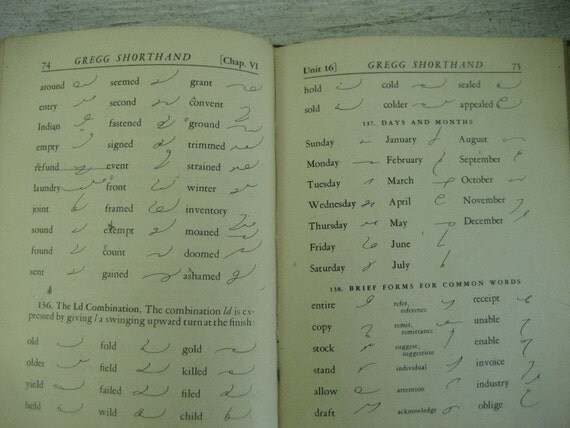 74 GREGG SHORTHAND [Chap. VI
around seemed grant
entry second convent
Indian fastened ground
empty signed trimmed
refund event strained
laundry front winter
joint framed inventory
sound exempt moaned
found count doomed
sent gained ashamed
136. The Ld Combination. The combination ld is ex-
pressed by giving l a swinging upward turn at the finish:
old fold gold
older field killed
yield failed filed
held wild child
Unit 16] GREGG SHORTHAND 75
hold cold sealed
sold colder appealed
137. DAYS AND MONTHS
Sunday January August
Monday February September
Tuesday March October
Wednesday April November
Thursday May December
Friday June
Saturday July
138. BRIEF FORMS FOR COMMON WORDS
entire refer, reference receipt
copy remit, remittance unable
stock suggest, suggestion enable
stand individual invoice
allow attention industry
draft acknowledge oblige